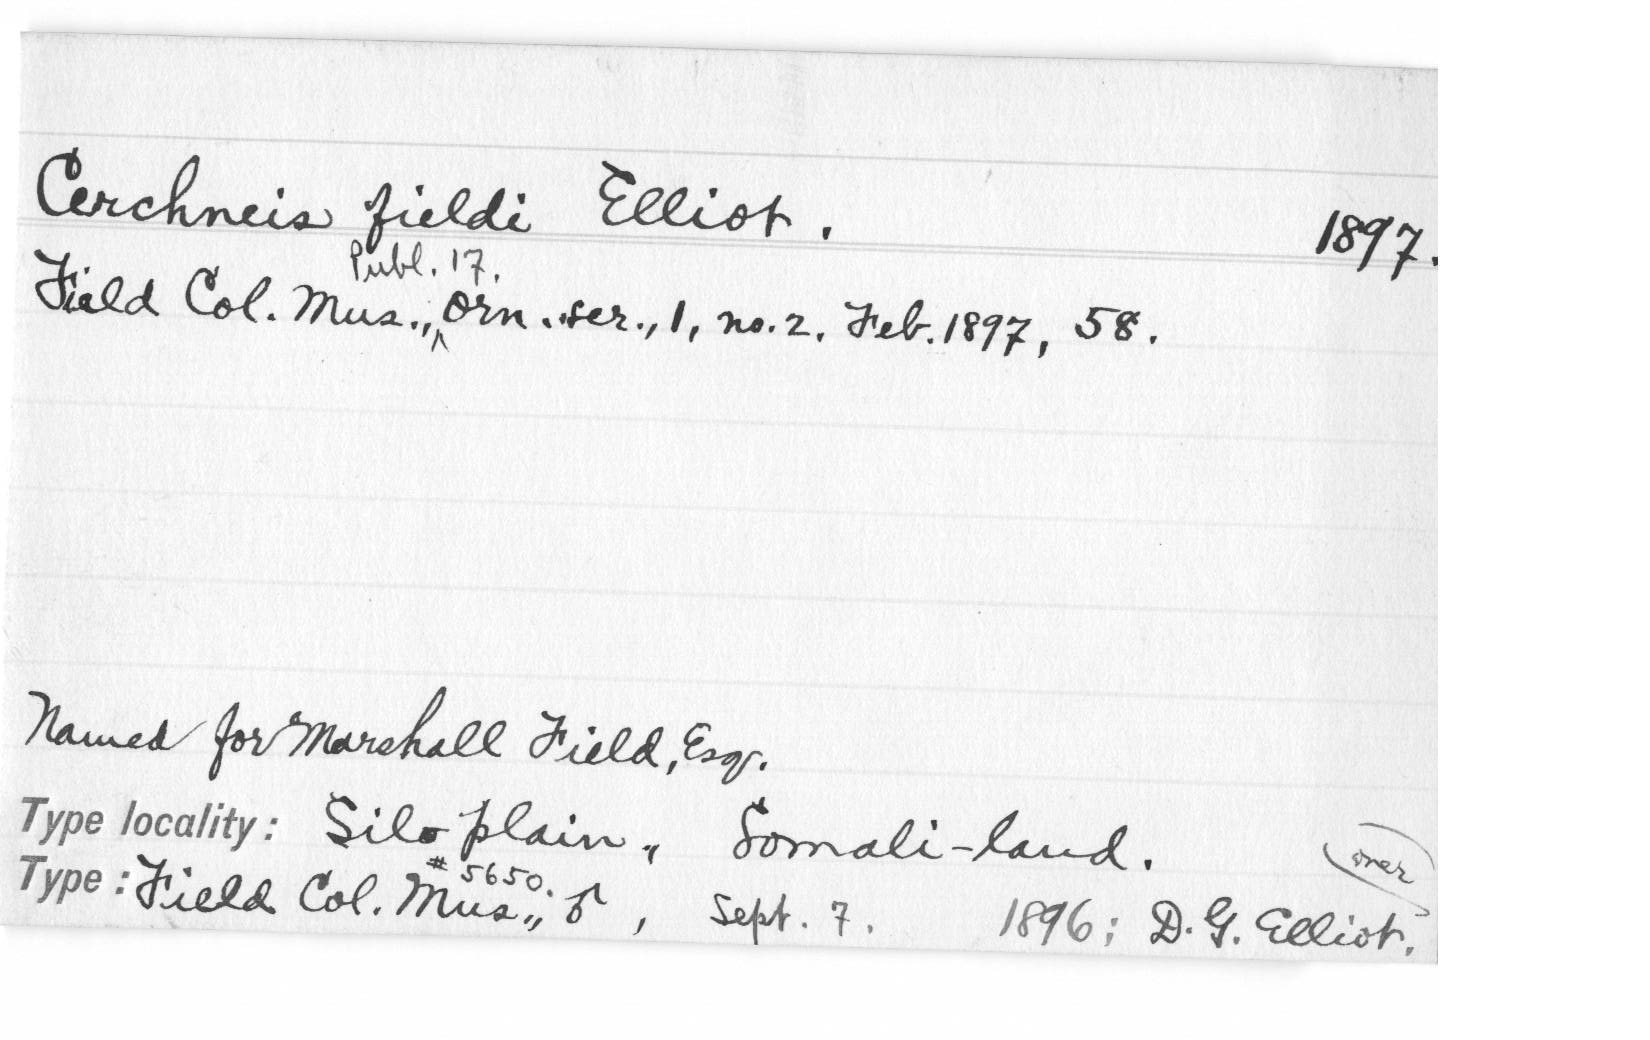 Cerchneis fieldi Elliot. 1897.
Publ. 17.
Field Col. Mus., Orn. ser., 1, no. 2. Feb. 1897, 58.
Named for Marshall Field, Esq.
Type locality: Silo plain, Somali-land.
(over)
#5650.
Type: Field Col. Mus., ♂, Sept. 7. 1896; D. G. Elliot.